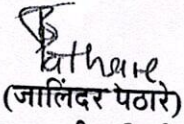 Pathare
(जालिंदर पेठारे)